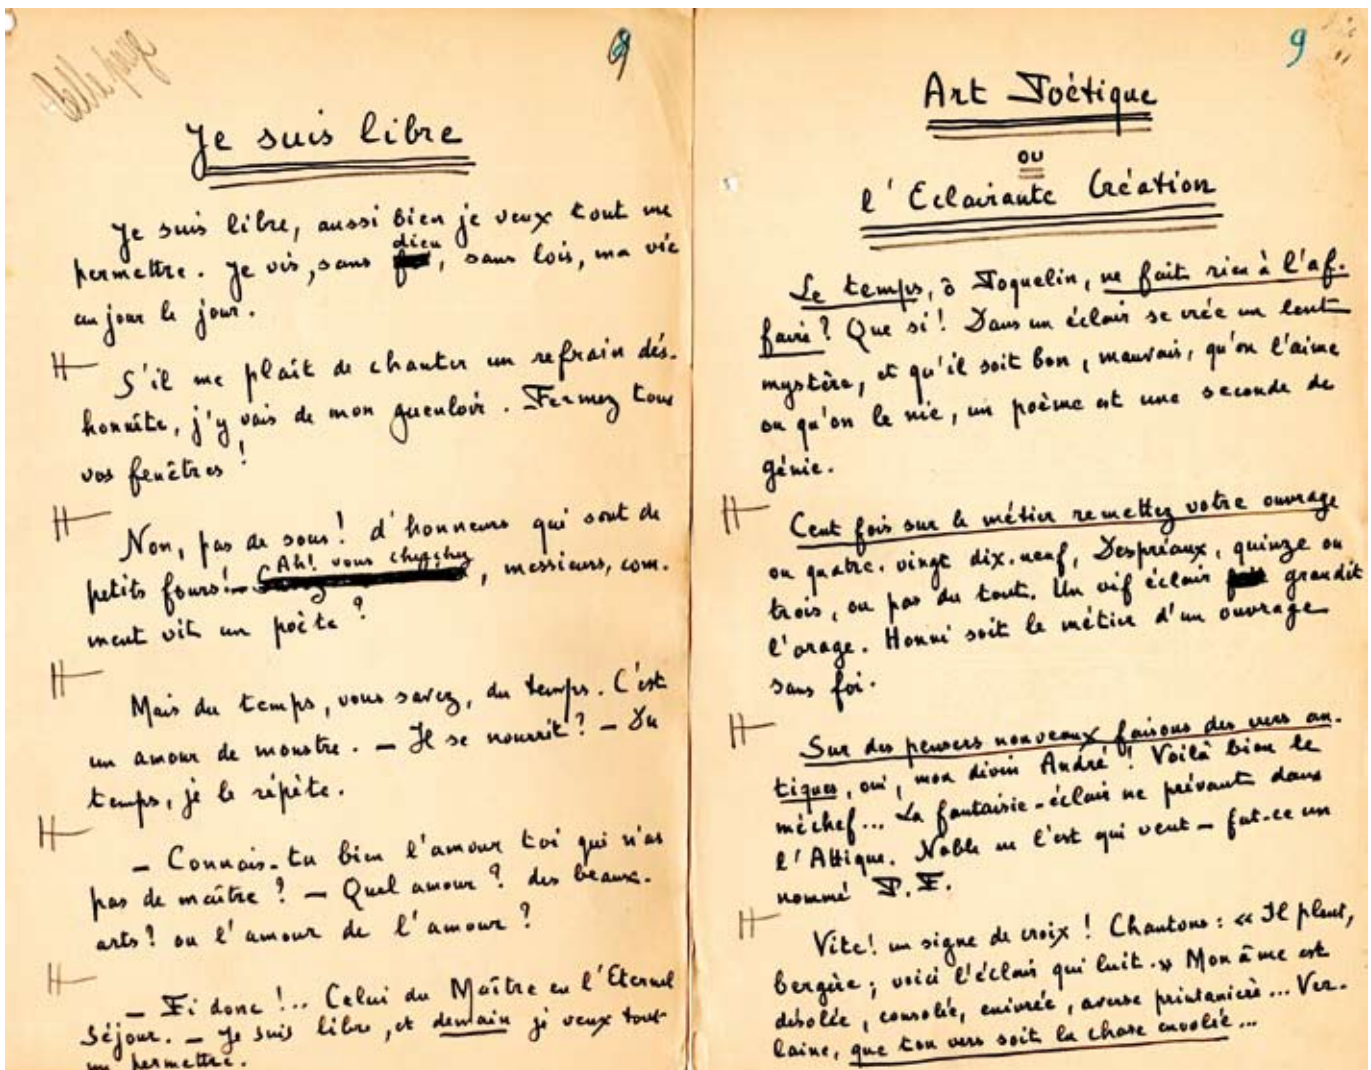 Belle page
9
Je suis libre
Je suis libre, aussi bien je veux tout me
dieu
permettre. Je vis, sans , sans lois, ma vie
au jour le jour.
S'il me plait de chanter un refrain dés-
honnête, j'y vais de mon gueuloir. Fermez tous
vos fenêtres !
Non, pas de sous ! d'honneurs qui sont de
Ah! vous cherchez
petits fours ! — , messieurs, com-
ment vit un poète ?
Mais du temps, vous savez, du temps. C'est
un amour de monstre. — Il se nourrit ? — Du
temps, je le répète.
— Connais-tu bien l'amour toi qui n'as
pas de maître ? — Quel amour ? des beaux-
arts ? ou l'amour de l'amour ?
— Fi donc !.. Celui du Maître en l'Eternel
Séjour. — Je suis libre, et demain je veux tout
me permettre.
9
Art Poétique
ou
l'Eclairante Création
Le temps, ô Poquelin, ne fait rien à l'af-
faire ? Que si ! Dans un éclair se crée un lent
mystère, et qu'il soit bon, mauvais, qu'on l'aime
ou qu'on le nie, un poème est une seconde de
génie.
Cent fois sur le métier remettez votre ouvrage
ou quatre-vingt dix-neuf, Despréaux, quinze ou
trois, ou pas du tout. Un vif éclair grandit
l'orage. Honni soit le métier d'un ouvrage
sans foi.
Sur des pensers nouveaux faisons des vers an-
tiques, oui, mon divin André ! Voilà bien le
méchef... La fantaisie-éclair ne prévaut dans
l'Attique. Noble ne l'est qui veut — fut-ce un
nommé P.F.
Vite ! un signe de croix ! Chantons : « Il pleut,
bergère ; voici l'éclair qui luit. » Mon âme est
désolée, consolée, enivrée, averse printanière... Ver-
laine, que ton vers soit la chose envolée...